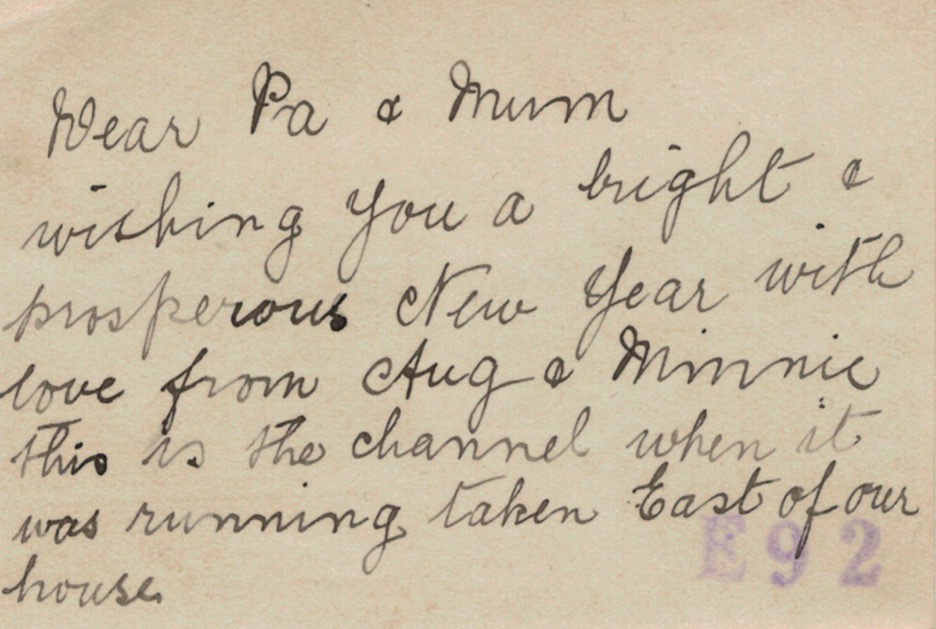 Dear Pa & Mum
wishing you a bright &
prosperous New Year with
love from Aug & Minnie
this is the channel when it
was running taken East of our
house.
E92